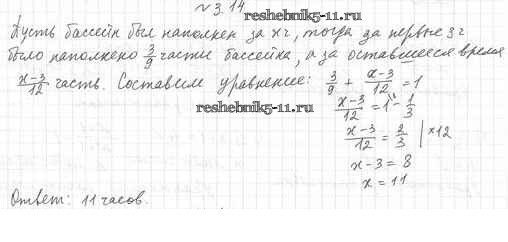 №3.14
reshebnik5-11.ru
Пусть бассейн был наполнен за x ч, тогда за первые 3 ч
было наполнено 3/9 части бассейна, а за оставшееся время
(x-3)/12 часть. Составим уравнение: 3/9 + (x-3)/12 = 1
reshebnik5-11.ru
(x-3)/12 = 1 - 1/3
(x-3)/12 = 2/3 | ×12
x-3 = 8
x = 11
Ответ: 11 часов.